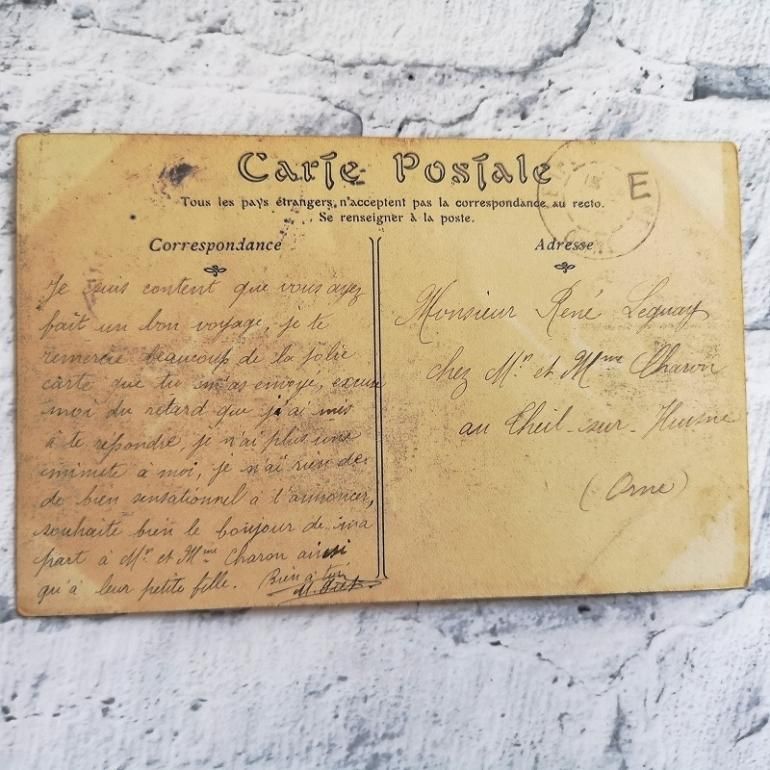 Carte Postale
Tous les pays étrangers, n'acceptent pas la correspondance au recto.
Se renseigner à la poste.
Correspondance
Je suis content que vous ayez
fait un bon voyage, je te
remercie beaucoup de la jolie
carte que tu m'as envoyé, excuse
moi du retard que j'ai mis
à te répondre, je n'ai plus une
minute à moi, je n'ai rien de
de bien sensationnel à t'annoncer,
souhaite bien le bonjour de ma
part à Mr et Mme Charon ainsi
qu'à leur petite fille. Bien à toi
Adresse
Monsieur René Leguay
chez Mr et Mme Charon
au Theil-sur-Huisne
(Orne)
E